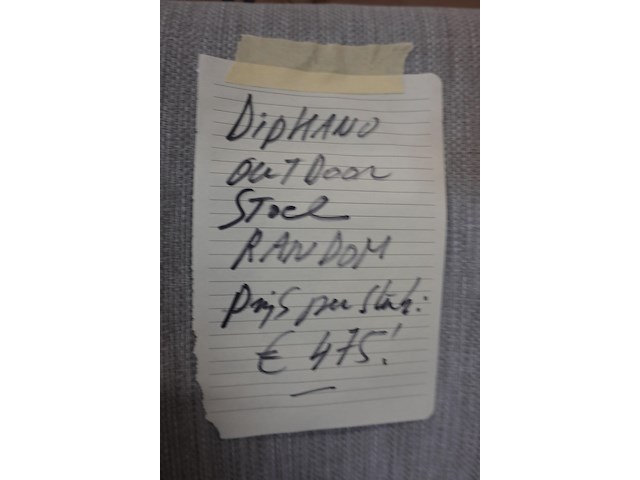 DipHANO
OUTDOOR
STOEL
RANDOM
Prijs per stuk:
€ 475!